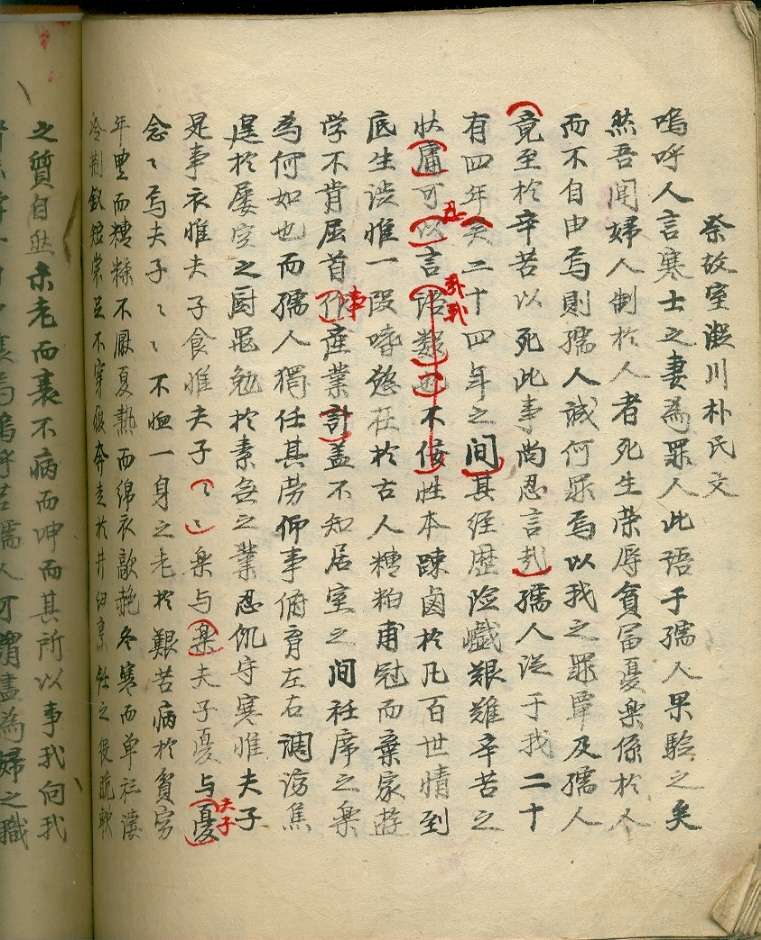 祭故室川朴氏文
嗚呼人言寒士之妻為罪人此語于孺人果驗之矣
然吾聞婦人制於人者死生荣辱貧冨憂楽係於人
而不自由焉則孺人誠何罪焉以我之罪覃及孺人
竟至於辛苦以死此事尚忍言㢤孺人從于我二十
有四年矣二十四年之间其経歴险巇艱難辛苦之
状庸可忍以言語数也哉不佞性本踈鹵於凡百世情到
底生澁惟一段嗜慾在於古人糟粕甫冠而棄家遊
学不肯屈首作事産業計盖不知居室之间衽席之楽
為何如也而孺人獨任其劳仰事俯育左右調济焦
遑於屡空之厨黽勉於素無之業忍飢守寒惟夫子
是事衣惟夫子食惟夫子〻〻楽与楽夫子憂与憂夫子
念〻焉夫子〻〻不恤一身之老於艱苦病於貧穷
年豊而糟糠不厭夏熱而綿衣歊赩冬寒而单衫凄
冷荆釵短裳不穿奔走於井臼烹飪之役
之質自然未老而衰不病而呻而其所以事我向我
嗚呼若孺人可謂盡為婦之職